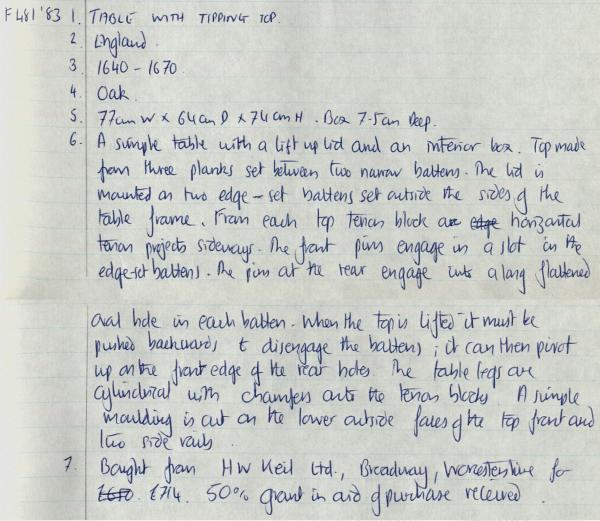 F481'83 1. TABLE WITH TIPPING TOP.
2. England.
3. 1640 - 1670.
4. Oak.
5. 77cm W x 64cm D x 74cm H. Box 7.5cm Deep.
6. A simple table with a lift up lid and an interior box. Top made
from three planks set between two narrow battens. The lid is
mounted on two edge-set battens set outside the sides of the
table frame. From each top tenon block a edge horizontal
tenon projects sideways. The front pins engage in a slot in the
edge-set battens. The pins at the rear engage into a long flattened
oval hole in each batten. When the top is lifted it must be
pushed backwards to disengage the battens; it can then pivot
up on the front edge of the rear holes. The table legs are
cylindrical with chamfers onto the tenon blocks. A simple
moulding is cut on the lower outside faces of the top front and
two side rails.
7. Bought from H W Keil Ltd., Broadway, Worcestershire for
£714. 50% grant in aid of purchase received.